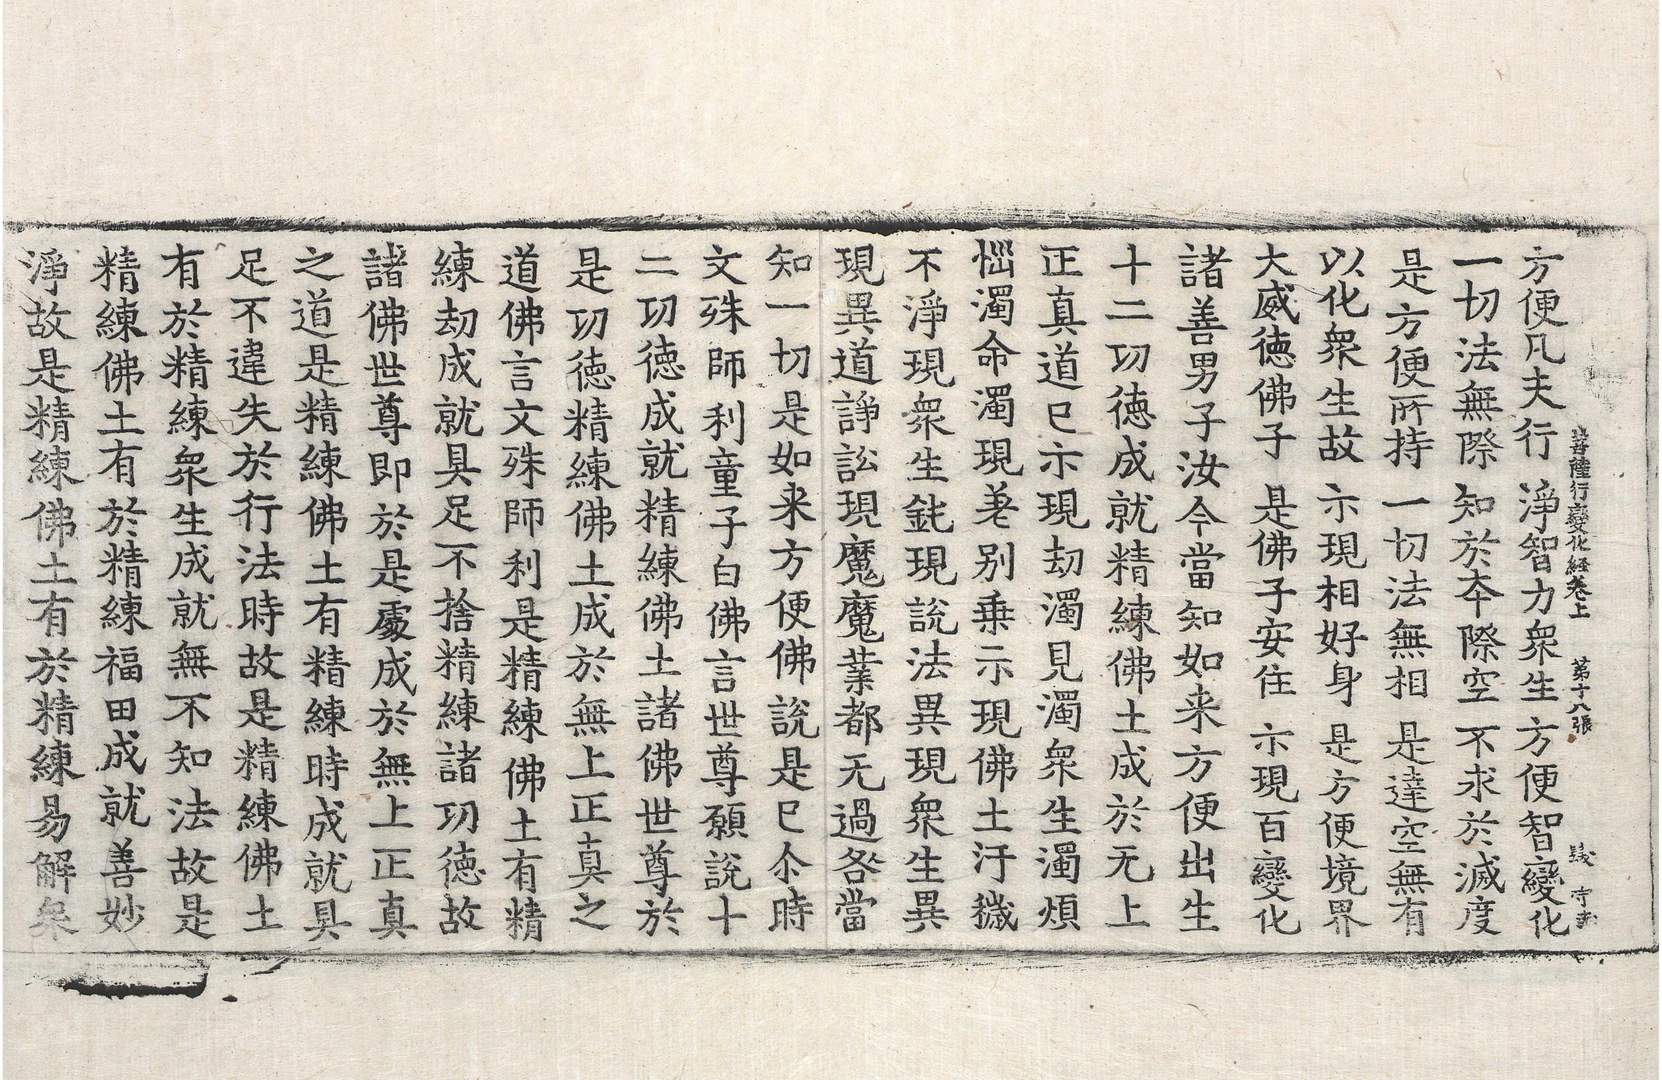 菩薩行變化經卷上　第十八張
方便凡夫行　淨智力衆生　方便智變化
一切法無際　知於本際空　不求於滅度
是方便所持　一切法無相　是達空無有
以化衆生故　示現相好身　是方便境界
大威德佛子　是佛子安住　示現百變化
諸善男子汝今當知如来方便出生
十二㓛德成就精練佛土成於无上
正真道已示現劫濁見濁衆生濁煩
惱濁命濁現差别乗示現佛土汙穢
不淨現衆生鈍現說法異現衆生異
現異道諍訟現魔魔業都无過咎當
知一切是如来方便佛說是已尒時
文殊師利童子白佛言世尊願說十
二㓛德成就精練佛土諸佛世尊於
是㓛德精練佛土成於無上正真之
道佛言文殊師利是精練佛土有精
練劫成就具足不捨精練諸㓛德故
諸佛世尊即於是處成於無上正真
之道是精練佛土有精練時成就具
足不違失於行法時故是精練佛土
有於精練衆生成就無不知法故是
精練佛土有於精練福田成就善妙
淨故是精練佛土有於精練易解衆